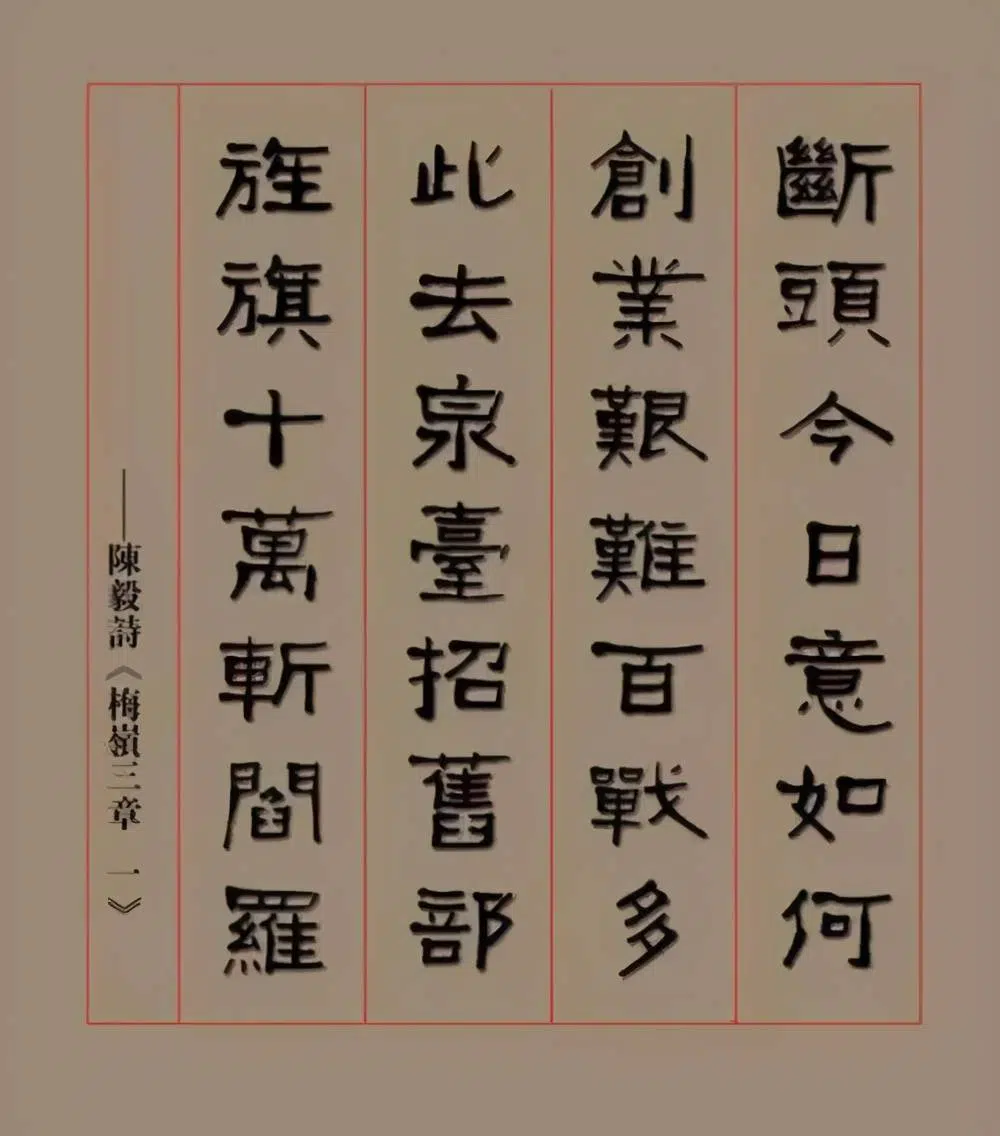 斷頭今日意如何
創業艱難百戰多
此去泉臺招舊部
旌旗十萬斬閻羅
——陳毅詩《梅嶺三章 一》